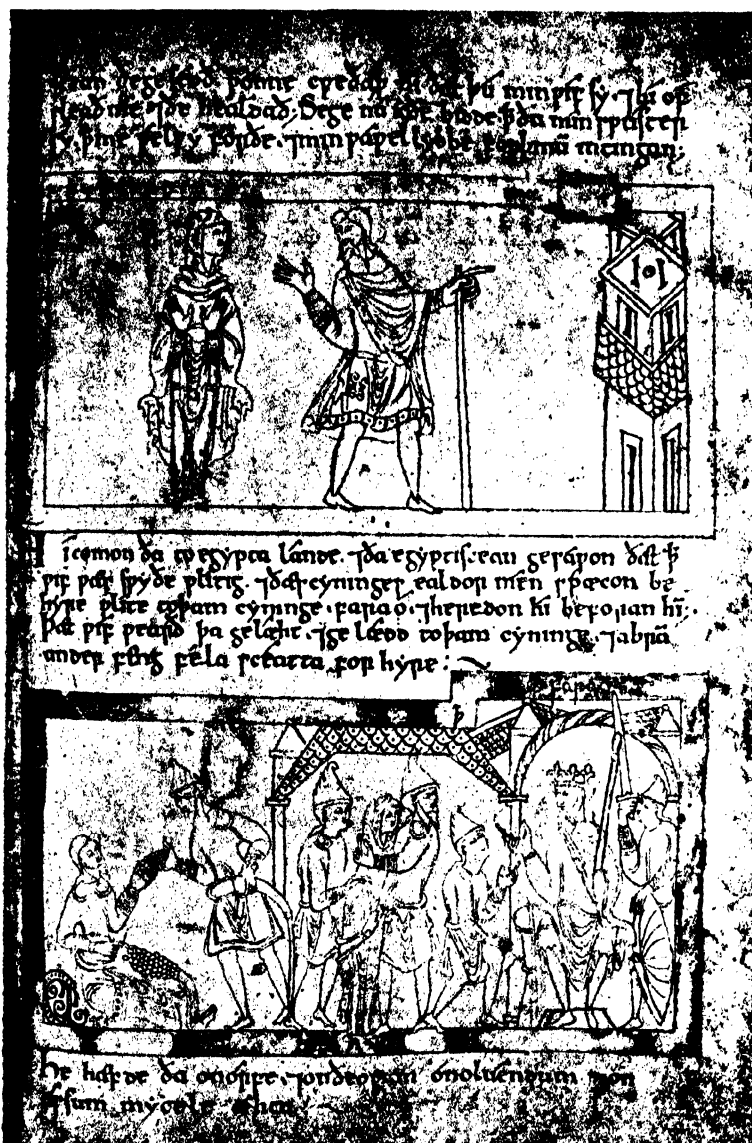 þonne cƿeðaþ hi ðæt þu min ƿif sy. ⁊ hi of
sleað me ⁊ ðe healdað. Sege nu ic ðe bidde ꝥ ðu min sƿuster
sy. ꝥ me ƿel sy for ðe. ⁊ min saƿel lybbe for þinū intingan;
Hi comon ða to egypta lande. ⁊ ða egyptiscean gesaƿon ðæt ꝥ
ƿif ƿæs sƿyðe ƿlitig. ⁊ ðæs cyninges ealdor men spræcon be
hyre ƿlite to þam cyninge. farao. ⁊ heredon hi beforan hī.
þæt ƿif ƿearð þa gelæht. ⁊ ge lædd to þam cyninge. ⁊ abrā
under feng fela sceatta for hyre;
He hæfde ða on orfe. ⁊ on ðeoƿum on oluendum ⁊ on
assum mycele æhta